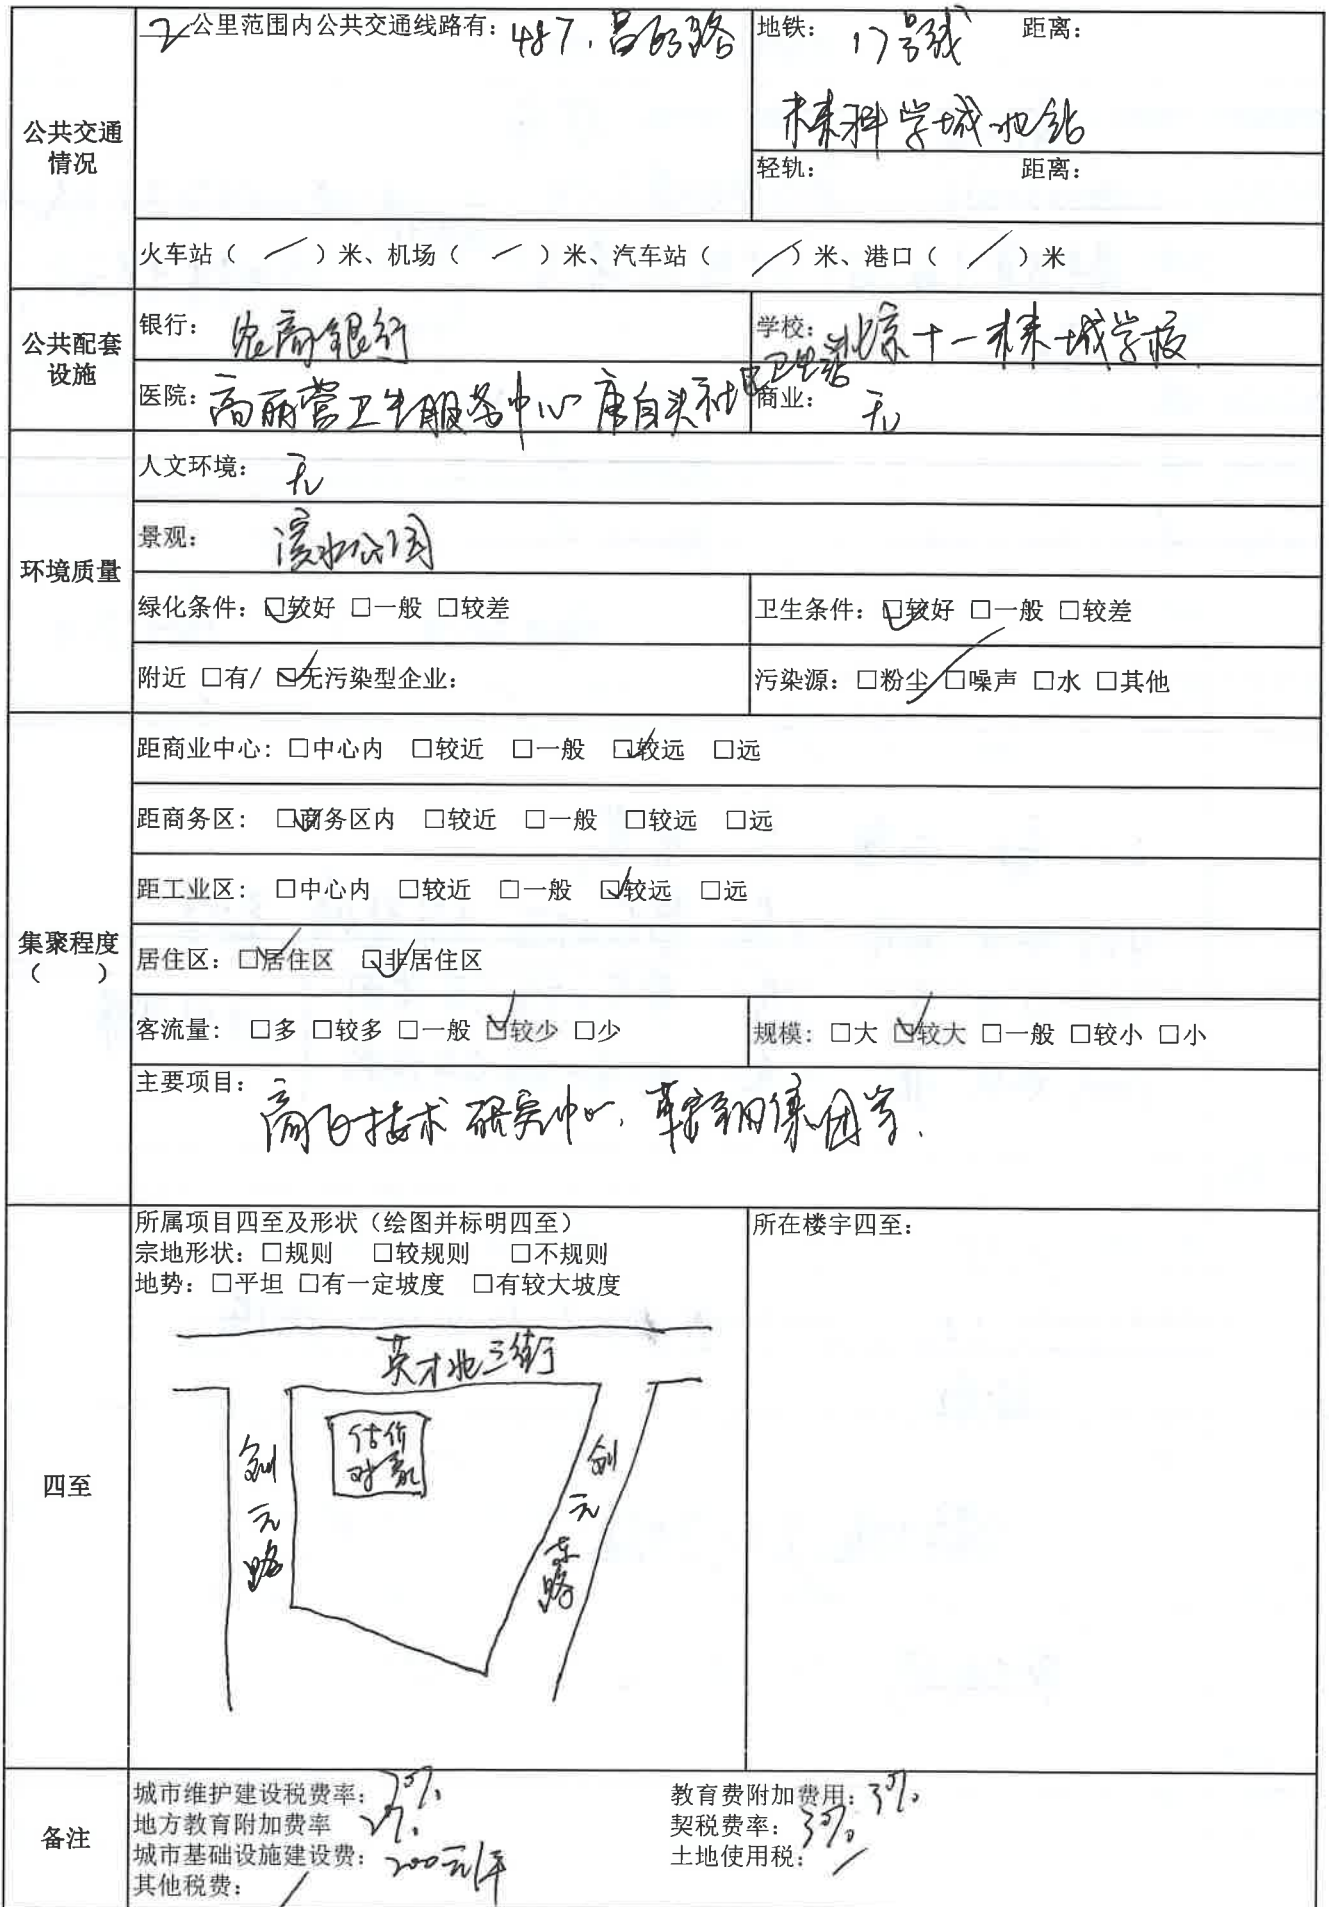 2公里范围内公共交通线路有：487、昌63路
地铁：17号线 距离：
未来科学城北站
公共交通情况
轻轨： 距离：
火车站（ ／ ）米、机场（ ／ ）米、汽车站（ ／ ）米、港口（ ／ ）米
公共配套设施
银行：农商银行
学校：北京十一未来城学校
医院：高丽营卫生服务中心唐自头社区卫生站
商业：无
环境质量
人文环境：无
景观：滨水公园
绿化条件：☑较好 □一般 □较差
卫生条件：☑较好 □一般 □较差
附近 □有/ ☑无污染型企业：
污染源：□粉尘 □噪声 □水 □其他
集聚程度
（ ）
距商业中心：□中心内 □较近 □一般 ☑较远 □远
距商务区： ☑商务区内 □较近 □一般 □较远 □远
距工业区： □中心内 □较近 □一般 ☑较远 □远
居住区：☑居住区 ☑非居住区
客流量： □多 □较多 □一般 ☑较少 □少
规模：□大 ☑较大 □一般 □较小 □小
主要项目：
技术研究中心、集团等.
四至
所属项目四至及形状（绘图并标明四至）
宗地形状：□规则 □较规则 □不规则
地势：□平坦 □有一定坡度 □有较大坡度
英才北三街
估价
对象
创元路
创元东路
所在楼宇四至：
备注
城市维护建设税费率：
教育费附加费用：3%
地方教育附加费率 2%
契税费率：3%
城市基础设施建设费：200元/平
土地使用税：／
其他税费：／